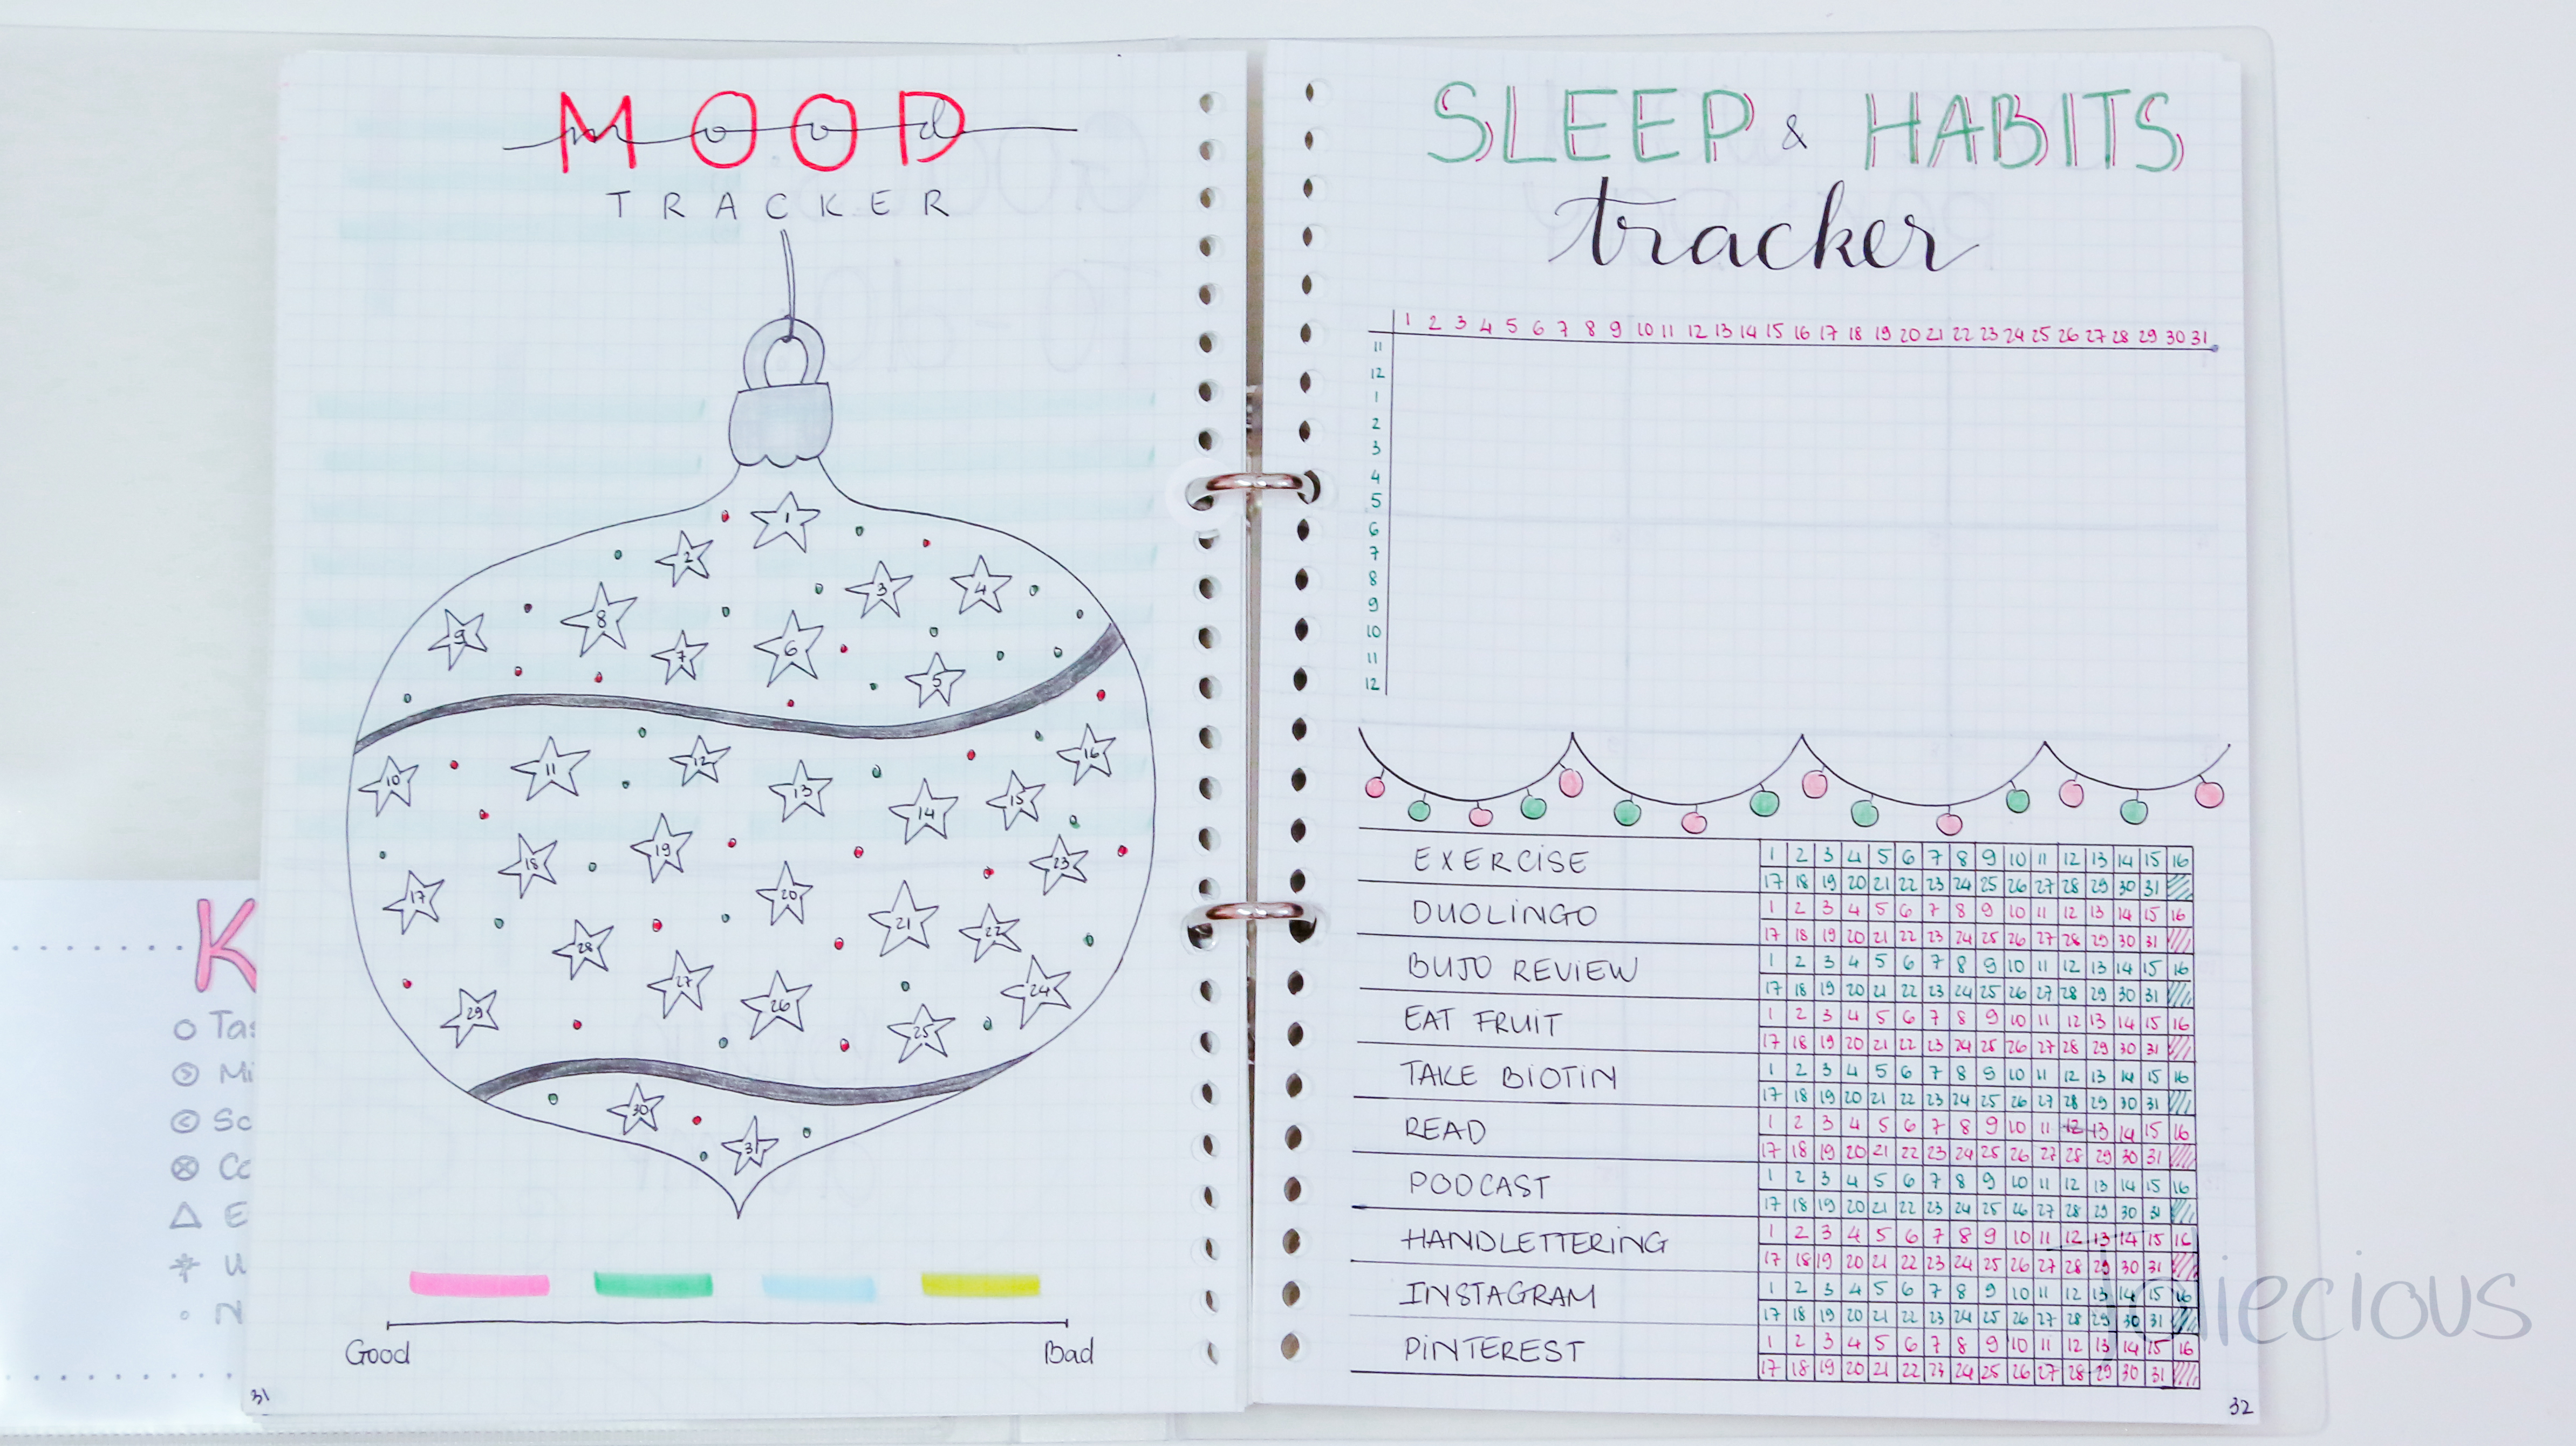 MOOD
mood
TRACKER
1
2
3
4
8
9
7
6
5
10
11
12
13
14
15
16
17
18
19
20
21
22
23
28
27
26
24
29
25
30
31
Good
Bad
31
K
Tas
Mi
Sc
Co
E
N
SLEEP & HABITS
tracker
1 2 3 4 5 6 7 8 9 10 11 12 13 14 15 16 17 18 19 20 21 22 23 24 25 26 27 28 29 30 31
11
12
1
2
3
4
5
6
7
8
9
10
11
12
EXERCISE 1 2 3 4 5 6 7 8 9 10 11 12 13 14 15 16
17 18 19 20 21 22 23 24 25 26 27 28 29 30 31
DUOLINGO 1 2 3 4 5 6 7 8 9 10 11 12 13 14 15 16
17 18 19 20 21 22 23 24 25 26 27 28 29 30 31
BUJO REVIEW 1 2 3 4 5 6 7 8 9 10 11 12 13 14 15 16
17 18 19 20 21 22 23 24 25 26 27 28 29 30 31
EAT FRUIT 1 2 3 4 5 6 7 8 9 10 11 12 13 14 15 16
17 18 19 20 21 22 23 24 25 26 27 28 29 30 31
TAKE BIOTIN 1 2 3 4 5 6 7 8 9 10 11 12 13 14 15 16
17 18 19 20 21 22 23 24 25 26 27 28 29 30 31
READ 1 2 3 4 5 6 7 8 9 10 11 12 13 14 15 16
17 18 19 20 21 22 23 24 25 26 27 28 29 30 31
PODCAST 1 2 3 4 5 6 7 8 9 10 11 12 13 14 15 16
17 18 19 20 21 22 23 24 25 26 27 28 29 30 31
HANDLETTERING 1 2 3 4 5 6 7 8 9 10 11 12 13 14 15 16
17 18 19 20 21 22 23 24 25 26 27 28 29 30 31
INSTAGRAM 1 2 3 4 5 6 7 8 9 10 11 12 13 14 15 16
17 18 19 20 21 22 23 24 25 26 27 28 29 30 31
PINTEREST 1 2 3 4 5 6 7 8 9 10 11 12 13 14 15 16
17 18 19 20 21 22 23 24 25 26 27 28 29 30 31
32